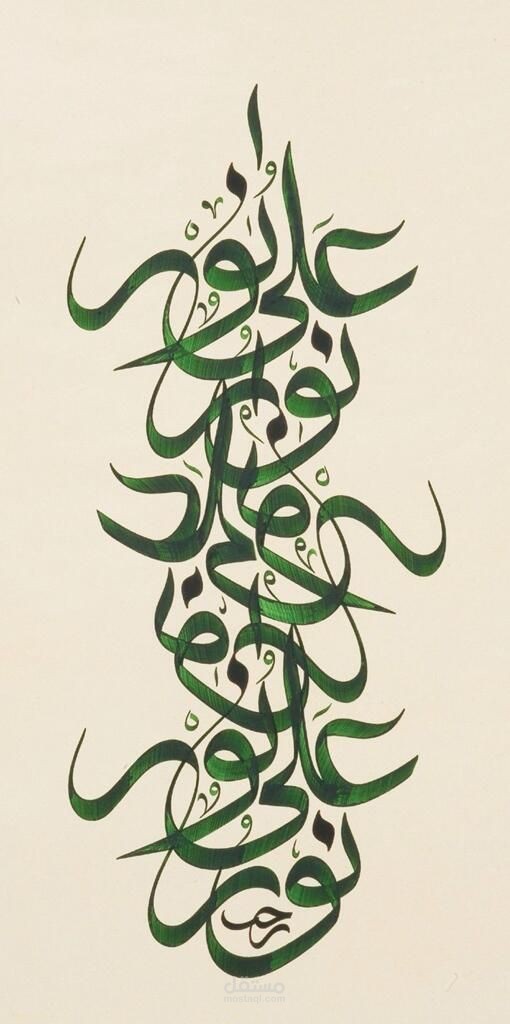 نور على نور
نور على نور
نور على نور
مستقل
mostaql.com